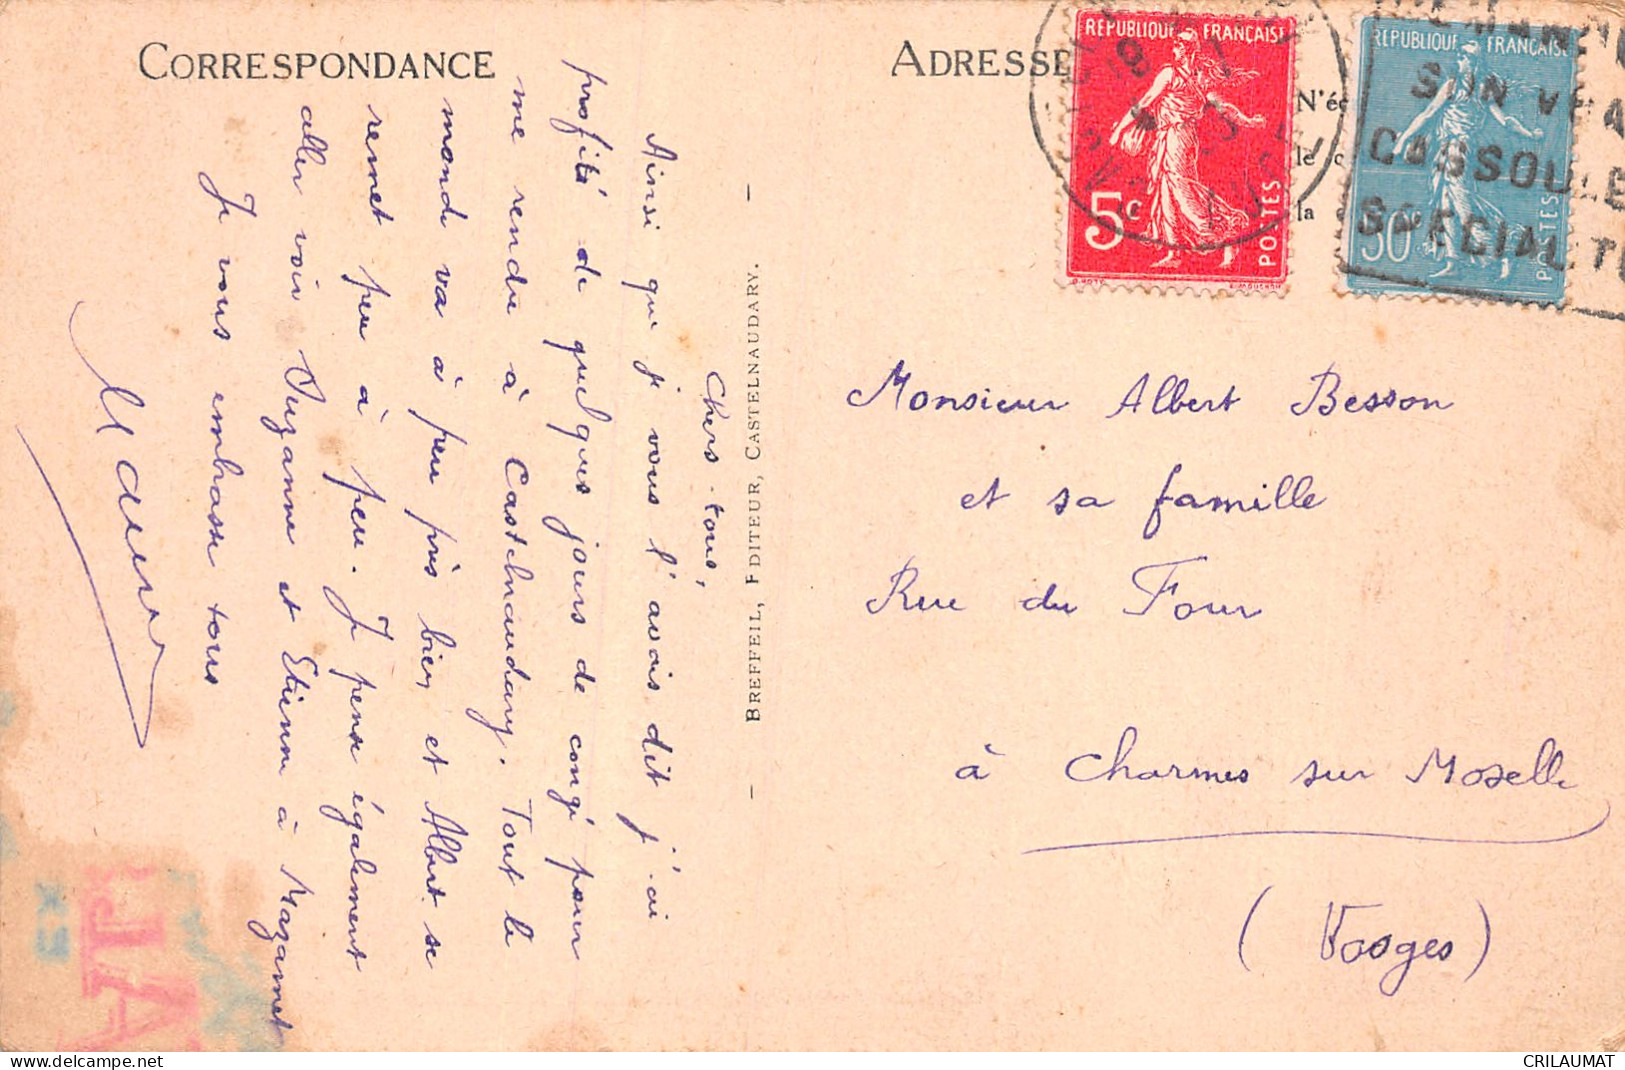 CORRESPONDANCE
Chers tous,
Ainsi que je vous l'avais dit j'ai
profité de quelques jours de congé pour
me rendre à Castelnaudary. Tout le
monde va à peu près bien et Albert se
remet peu à peu. Je pense également
aller voir Suzanne et Etienne à Mazamet
Je vous embrasse tous
BREFFEIL, EDITEUR, CASTELNAUDARY.
ADRESSE
N'éc
le c
la
REPUBLIQUE FRANÇAISE
5c
POSTES
REPUBLIQUE FRANÇAISE
50c
POSTES
SON VRA
CASSOULE
SPECIALITE
Monsieur Albert Besson
et sa famille
Rue du Four
à Charmes sur Moselle
(Vosges)
delcampe.net
CRILAUMAT